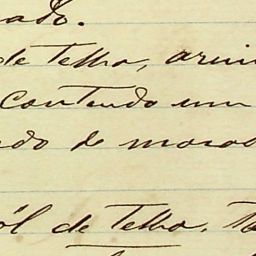 ado.
de telha, arrui
contendo um
ndo de moras
ol de telha. Ta